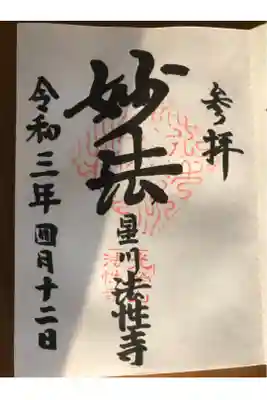 参拝
妙法
星川法性寺
令和三年四月十二日